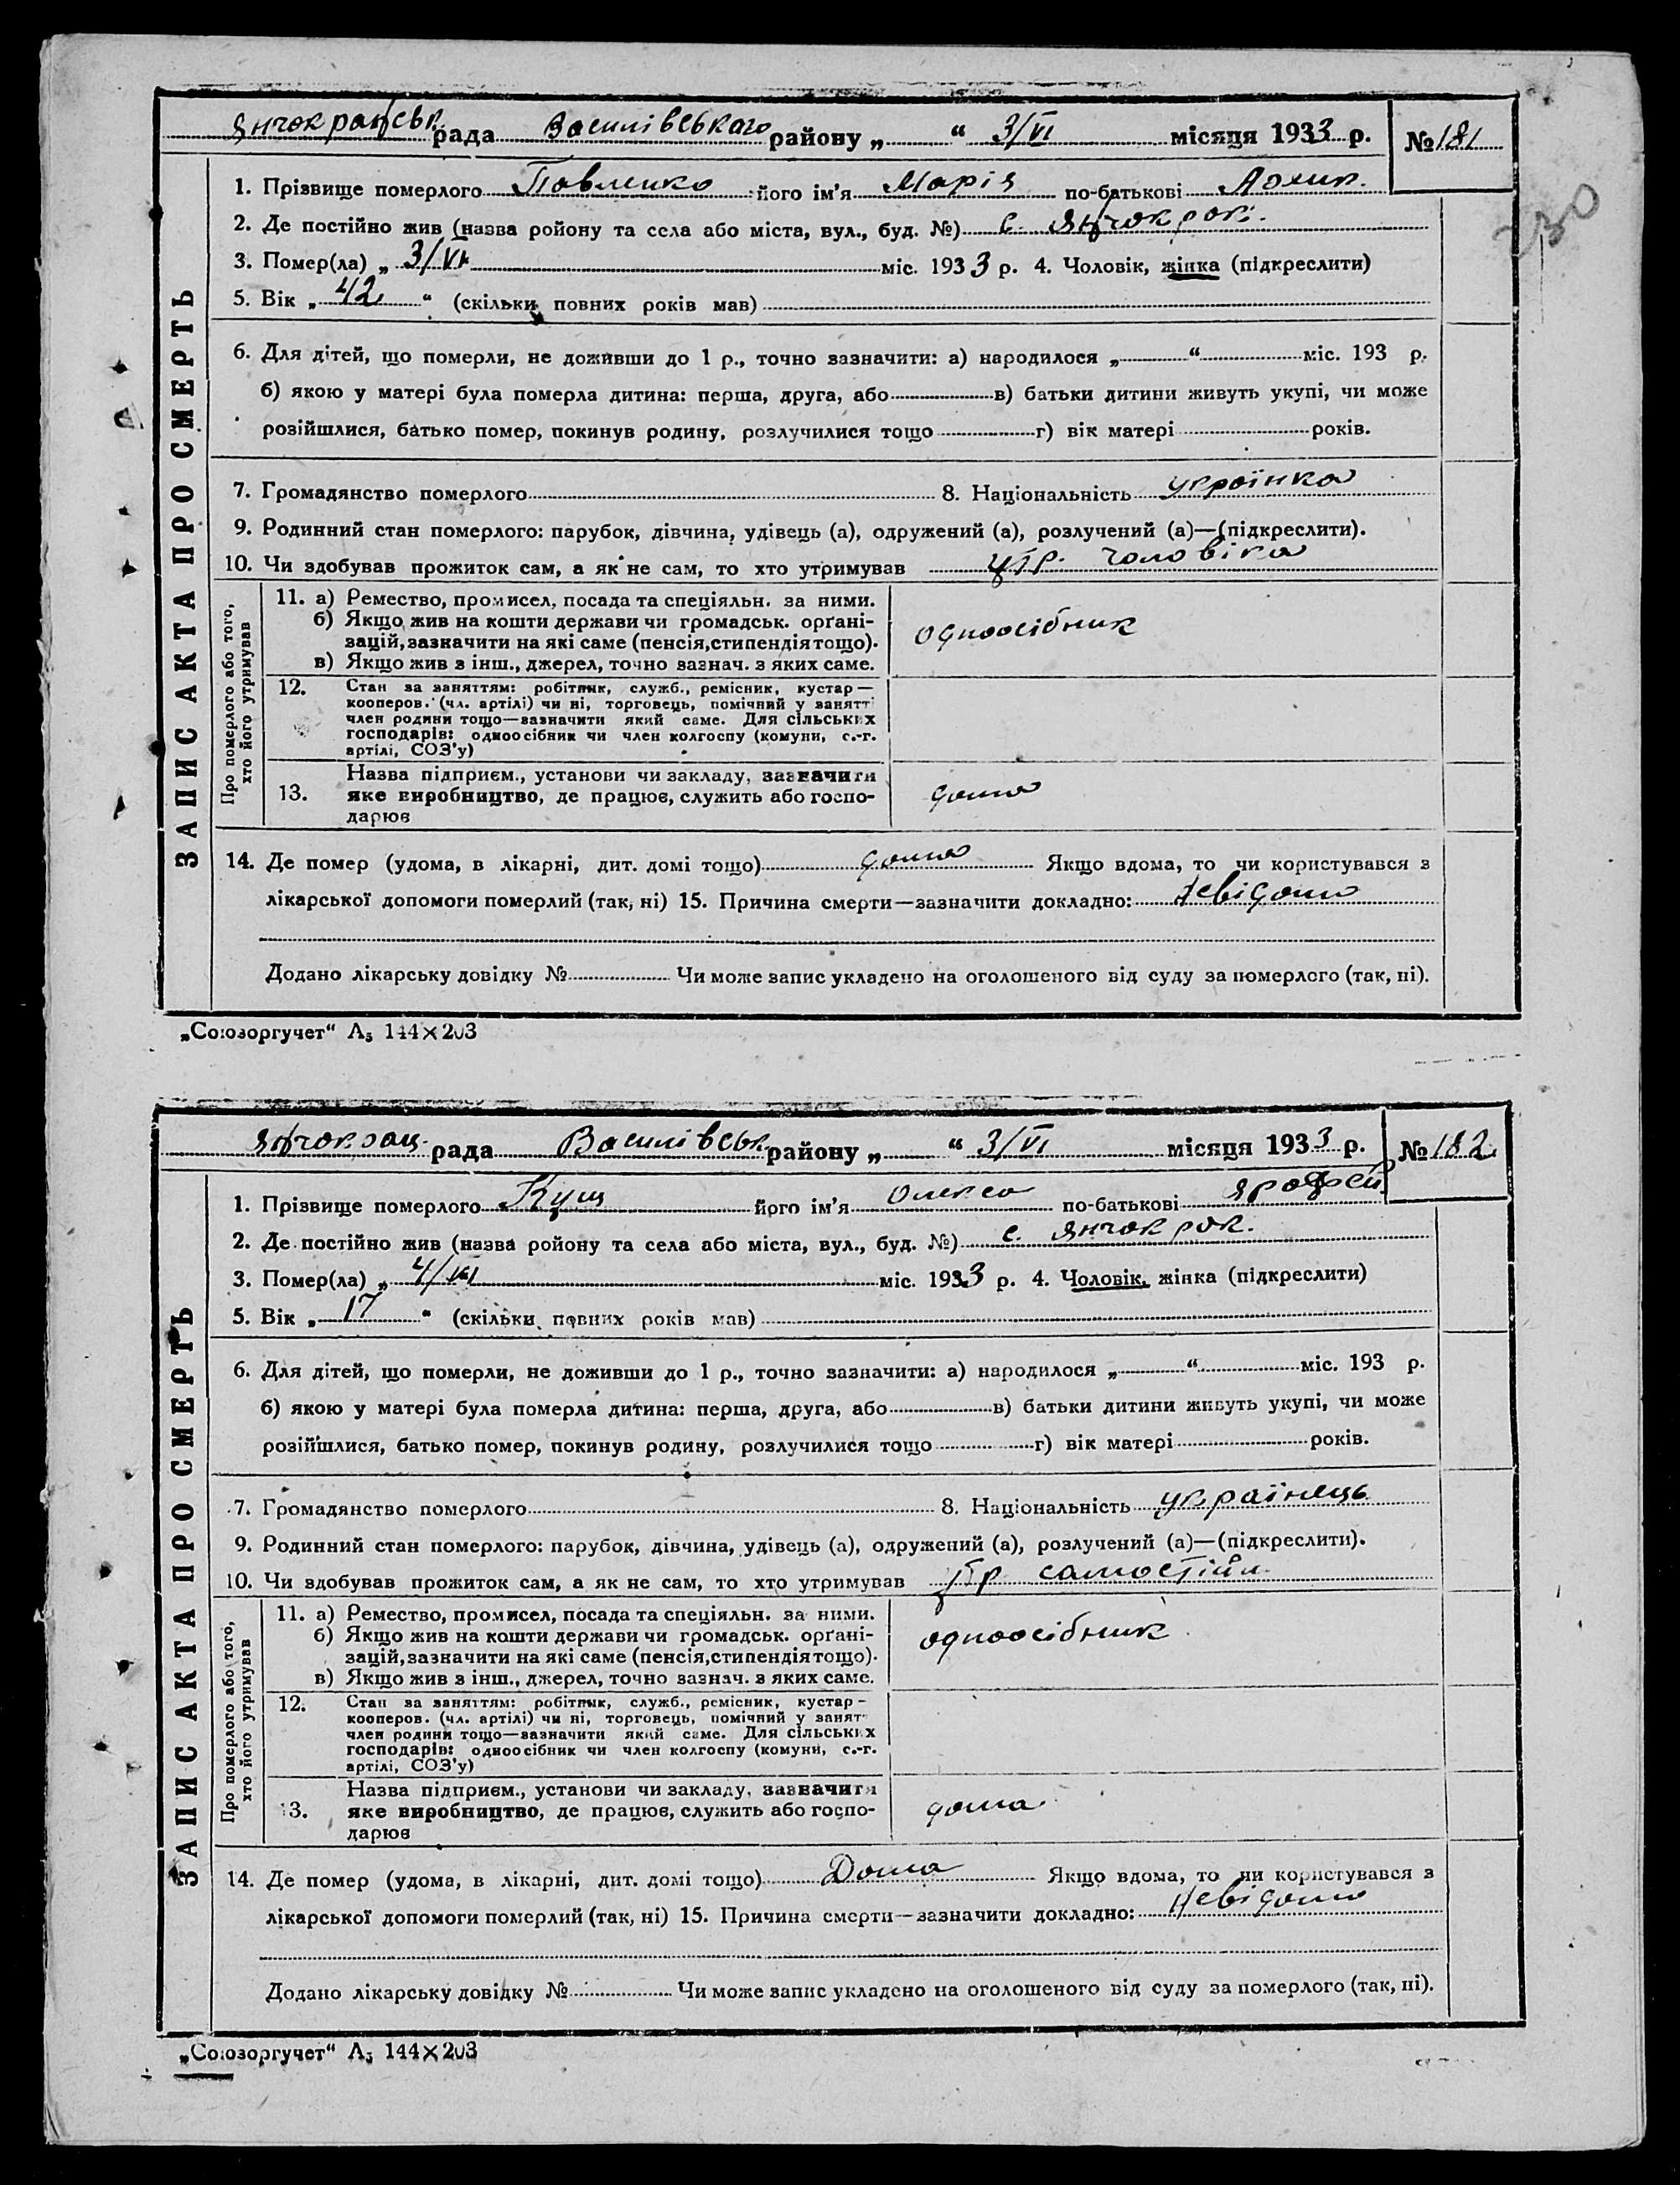 230
Янчокрацськ. рада Василівського району „ “ 3/VI місяця 1933 р. № 181
ЗАПИС АКТА ПРО СМЕРТЬ
1. Прізвище померлого Павленко його ім'я Марія по-батькові
2. Де постійно жив (назва ройону та села або міста, вул., буд. №) с. Янчокрак.
3. Помер(ла) „ 3/VI міс. 1933 р. 4. Чоловік, жінка (підкреслити)
5. Вік „ 42 “ (скільки повних років мав)
6. Для дітей, що померли, не доживши до 1 р., точно зазначити: а) народилося „ “ міс. 193 р.
б) якою у матері була померла дитина: перша, друга, або в) батьки дитини живуть укупі, чи може
розійшлися, батько помер, покинув родину, розлучилися тощо г) вік матері років.
7. Громадянство померлого 8. Національність українка
9. Родинний стан померлого: парубок, дівчина, удівець (а), одружений (а), розлучений (а)—(підкреслити).
10. Чи здобував прожиток сам, а як не сам, то хто утримував утр. чоловіка
Про померлого або того, хто його утримував
11. а) Ремество, промисел, посада та спеціяльн. за ними.
б) Якщо жив на кошти держави чи громадськ. орґані-
зацій, зазначити на які саме (пенсія, стипендія тощо).
в) Якщо жив з інш., джерел, точно зазнач. з яких саме.
одноосібник
12. Стан за заняттям: робітник, служб., ремісник, кустар—
кооперов. (чл. артілі) чи ні, торговець, помічний у занятт
член родини тощо—зазначити який саме. Для сільських
господарів: одноосібник чи член колгоспу (комуни, с.-г.
артілі, СОЗ'у)
13. Назва підприєм., установи чи закладу, зазначити
яке виробництво, де працює, служить або госпо-
дарює
дома
14. Де помер (удома, в лікарні, дит. домі тощо) дома Якщо вдома, то чи користувався з
лікарської допомоги померлий (так, ні) 15. Причина смерти—зазначити докладно: невідомо
Додано лікарську довідку № Чи може запис укладено на оголошеного від суду за померлого (так, ні).
„Союзоргучет“ А5 144×203
Янчокрац. рада Василівськ району „ “ 3/VI місяця 1933 р. № 182
ЗАПИС АКТА ПРО СМЕРТЬ
1. Прізвище померлого Кущ його ім'я Олекса по-батькові Ярофей
2. Де постійно жив (назва ройону та села або міста, вул., буд. №) с. Янчокрак.
3. Помер(ла) „ міс. 1933 р. 4. Чоловік, жінка (підкреслити)
5. Вік „ 17 “ (скільки повних років мав)
6. Для дітей, що померли, не доживши до 1 р., точно зазначити: а) народилося „ “ міс. 193 р.
б) якою у матері була померла дитина: перша, друга, або в) батьки дитини живуть укупі, чи може
розійшлися, батько помер, покинув родину, розлучилися тощо г) вік матері років.
7. Громадянство померлого 8. Національність українець
9. Родинний стан померлого: парубок, дівчина, удівець (а), одружений (а), розлучений (а)—(підкреслити).
10. Чи здобував прожиток сам, а як не сам, то хто утримував утр самостійн.
Про померлого або того, хто його утримував
11. а) Ремество, промисел, посада та спеціяльн. за ними.
б) Якщо жив на кошти держави чи громадськ. орґані-
зацій, зазначити на які саме (пенсія, стипендія тощо).
в) Якщо жив з інш., джерел, точно зазнач. з яких саме.
одноосібник
12. Стан за заняттям: робітник, служб., ремісник, кустар-
кооперов. (чл. артілі) чи ні, торговець, помічний у занят
член родини тощо—зазначити який саме. Для сільських
господарів: одноосібник чи член колгоспу (комуни, с.-г.
артілі, СОЗ'у)
13. Назва підприєм., установи чи закладу, зазначити
яке виробництво, де працює, служить або госпо-
дарює
дома
14. Де помер (удома, в лікарні, дит. домі тощо) Дома Якщо вдома, то чи користувався з
лікарської допомоги померлий (так, ні) 15. Причина смерти—зазначити докладно: невідомо
Додано лікарську довідку № Чи може запис укладено на оголошеного від суду за померлого (так, ні).
„Союзоргучет“ А5 144×203